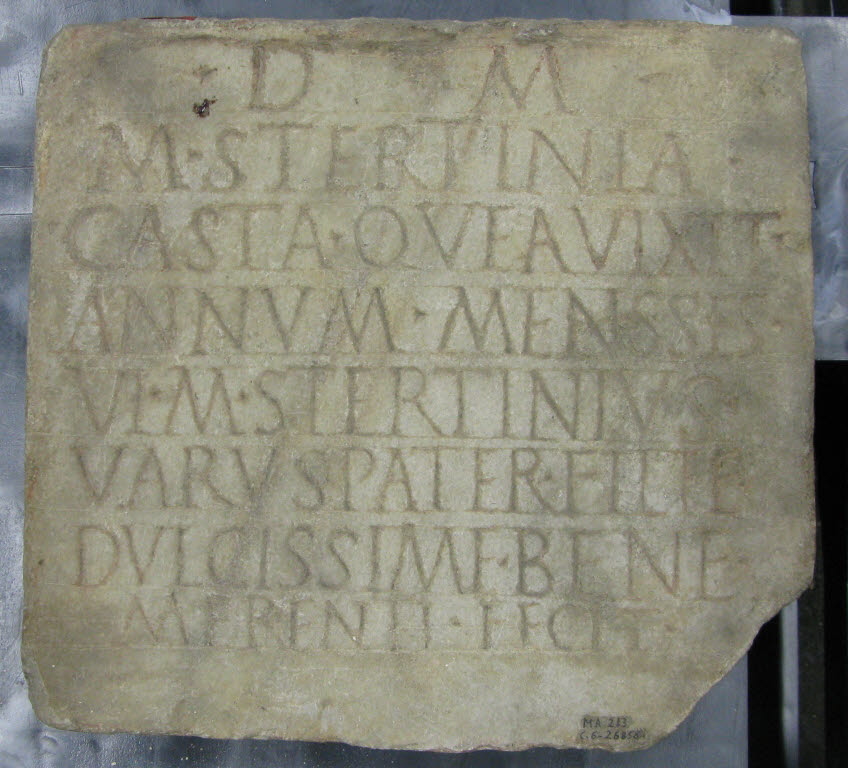 D M
M·STERTINIA
CASTA·QVEAVIXIT·
ANNVM·MENSSES·
VI·M·STERTINIVS·
VARVSPATER·FILIE
DVLCISSIME·BENE
MERENTI·FECIT
MA 213